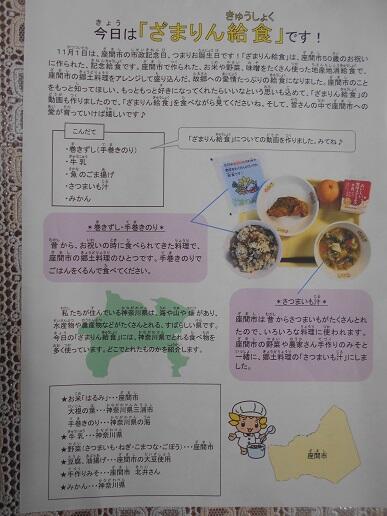 今日は「ざまりん給食」です！
11月1日は、座間市の市政記念日、つまりお誕生日です！「ざまりん給食」は、座間市50歳のお祝い
に作られた、記念給食です。座間市で作られた、お米や野菜、味噌をたくさん使った地産地消給食で、
座間市の郷土料理をアレンジして盛り込んだ、故郷への愛情たっぷりの給食になりました。座間市のことを
もっと知ってほしい、もっともっと好きになってくれたらいいなという思いも込めて、「ざまりん給食」の
動画も作りましたので、「ざまりん給食」を食べながら見てくださいね。そして、皆さんの中で座間市への
愛が育っていけば嬉しいです♪
こんだて
・巻きずし（手巻きのり）
・牛乳
・魚のごま揚げ
・さつまいも汁
・みかん
「ざまりん給食」についての動画を作りました。みてね♪
＊巻きずし・手巻きのり＊
昔から、お祝いの時に食べられてきた料理で、
座間市の郷土料理のひとつです。手巻きのりで
ごはんをくるんで食べてください。
＊さつまいも汁＊
座間市は昔からさつまいもがたくさんとれ
たので、いろいろな料理に使われます。
座間市の野菜や農家さん手作りのみそと
一緒に、郷土料理の「さつまいも汁」にしま
した。
私たちが住んでいる神奈川県は、海や山や畑があり、
水産物や農産物などがたくさんとれる、すばらしい県です。
今日の「ざまりん給食」には、神奈川県でとれる食べ物を
多く使っています。どこでとれたものかを紹介します。
★お米「はるみ」・・・座間市
大根の葉・・・神奈川県三浦市
手巻きのり・・・神奈川県の海
★牛乳・・・神奈川県
★野菜（さつまいも・ねぎ・こまつな・ごぼう）・・・座間市
★豆腐、油揚げ・・・座間市の大豆使用
★手作りみそ・・・座間市　北井さん
★みかん・・・神奈川県
座間市